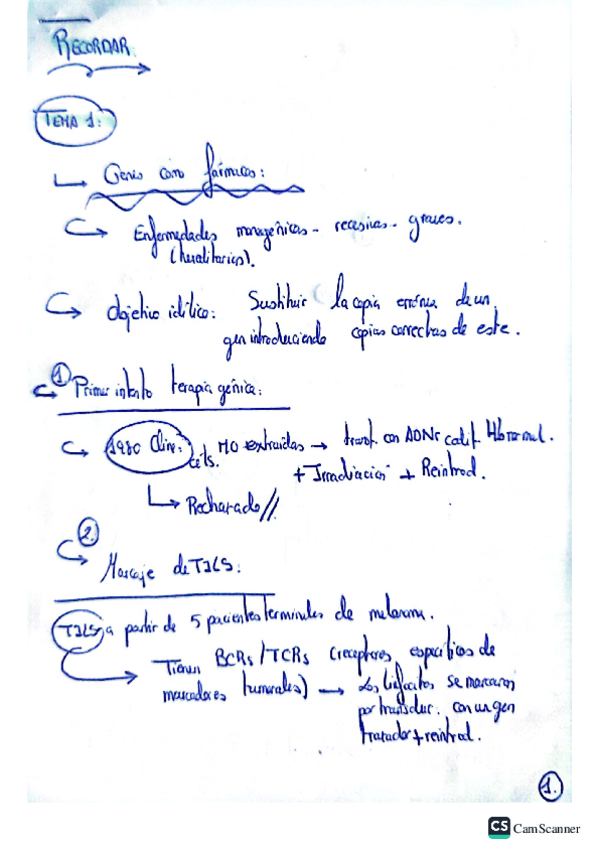 RECORDAR:
TEMA 1:
Genes como fármacos:
Enfermedades monogénicas - recesivas - graves.
(hereditarios).
Objetivo idílico: Sustituir la copia errónea de un
gen introduciendo copias correctas de este.
① Primer intento terapia génica:
1980 Cline: céls. MO extraidas → transf. con ADNr codif. Hb normal.
+ Irradiación + Reintrod.
Rechazado //
②
Marcaje de TILS:
TILS a partir de 5 pacientes terminales de melanoma.
Tienen BCRs/TCRs (receptores específicos de
marcadores tumorales) → Los linfocitos se marcaron
por transduc. con un gen
trazador + reintrod.
1.
CS CamScanner